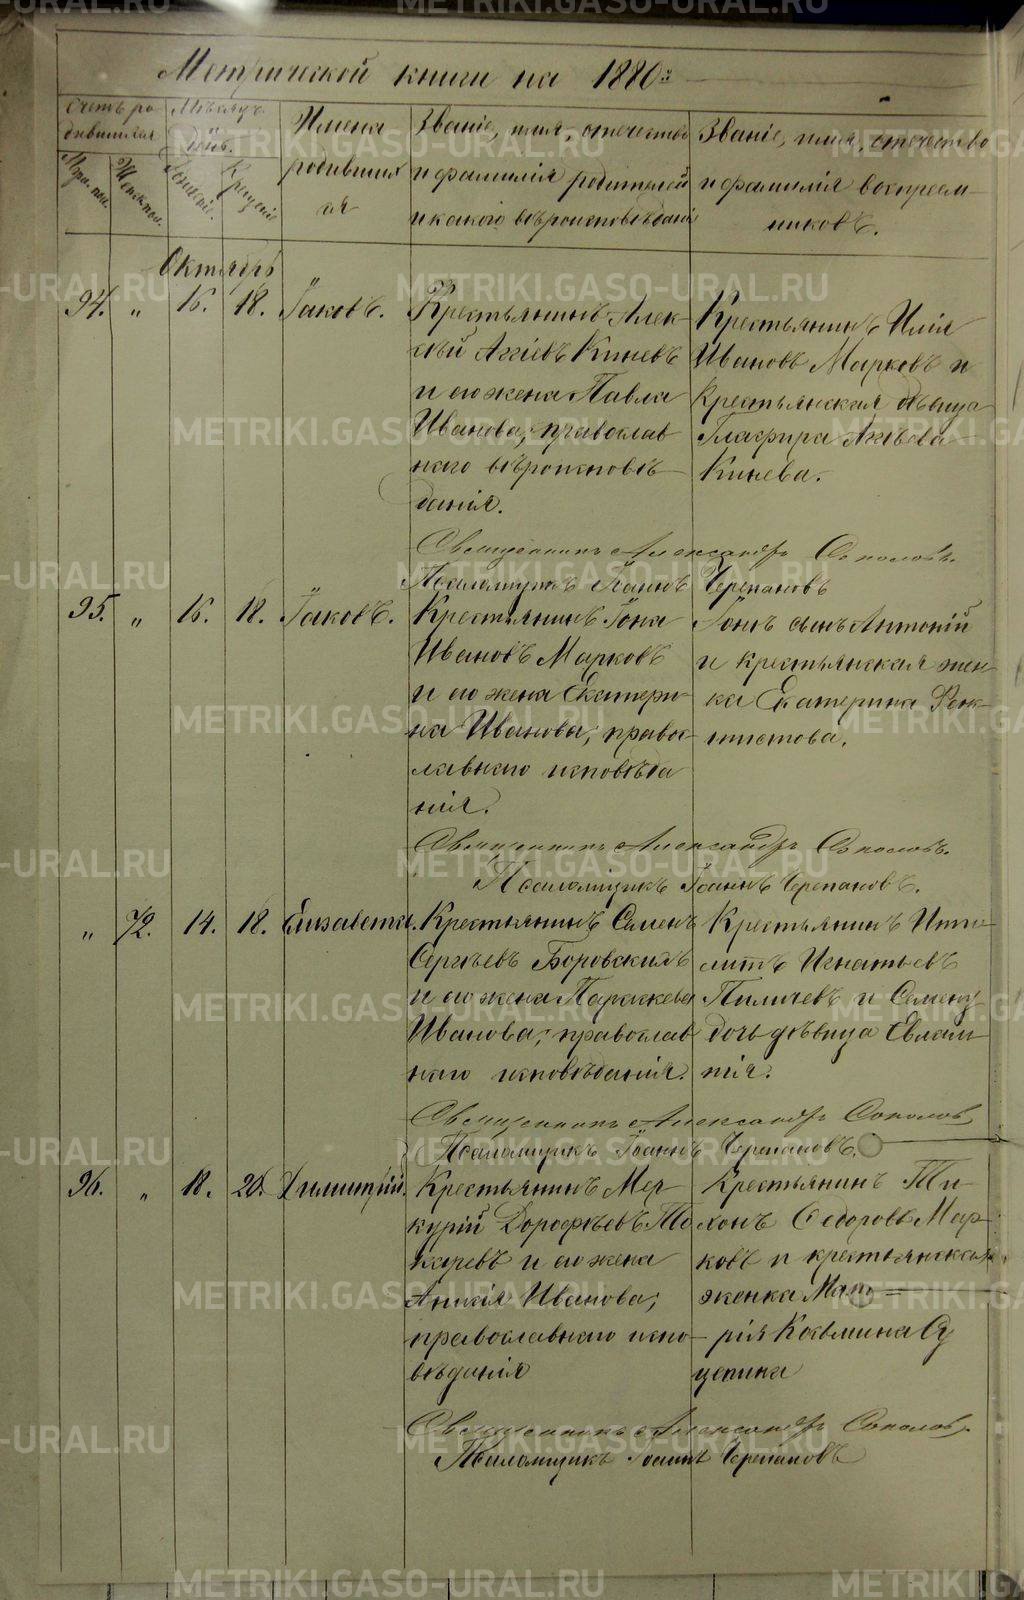 Метрической книги на 1880 г.
Счетъ родившихся
Мужс. пол.
Женск. пол.
Мѣсяцъ день.
Рожденія.
Крещенія
Имена родившихся
Званіе, имя, отечество
и фамилія родителей
и какого вѣроисповѣданія
Званіе, имя, отчество
и фамилія воспреем-
никовъ.
Октябрь
94. „ 16. 18. Іаковъ.
Крестьянинъ Алек-
сѣй Агіевъ Киневъ
и его жена Павла
Иванова; православ
наго вѣроисповѣ-
данія.
Крестьянинъ Илія
Ивановъ Марковъ и
крестьянская дѣвица
Глафира Агіева
Кинева.
Священникъ Александръ Соколовъ.
Псаломщикъ Іоаннъ Черепановъ
95. „ 16. 18. Іаковъ.
Крестьянинъ Іона
Ивановъ Марковъ
и его жена Екатери-
на Иванова; правос-
лавнаго исповѣда
нія.
Іонъ сынъ Антоній
и крестьянская жен-
ка Екатерина
Священникъ Александръ Соколовъ.
Псаломщикъ Іоаннъ Черепановъ.
„ 72. 14. 18. Елизавета.
Крестьянинъ Семенъ
Сергѣевъ Боровскихъ
и его жена Параскева
Иванова; православ
наго исповѣданія.
Крестьянинъ Иппо-
литъ Игнатьевъ
Пиличевъ и Семену
дочь дѣвица Евлам-
пія.
Священникъ Александръ Соколов
Псаломщикъ Іоаннъ Черепановъ.
96. „ 18. 20. Димитрій.
Крестьянинъ Мер-
курій Дорофѣевъ То
каревъ и его жена
Анисія Иванова;
православнаго испо-
вѣданія
Крестьянинъ Ти-
хонъ Ѳедоровъ Мар-
ковъ и крестьянская
женка Ма
рія Козьмина Су
цепина
Священникъ Александръ Соколов.
Псаломщикъ Іоаннъ Черепановъ
METRIKI.GASO-URAL.RU